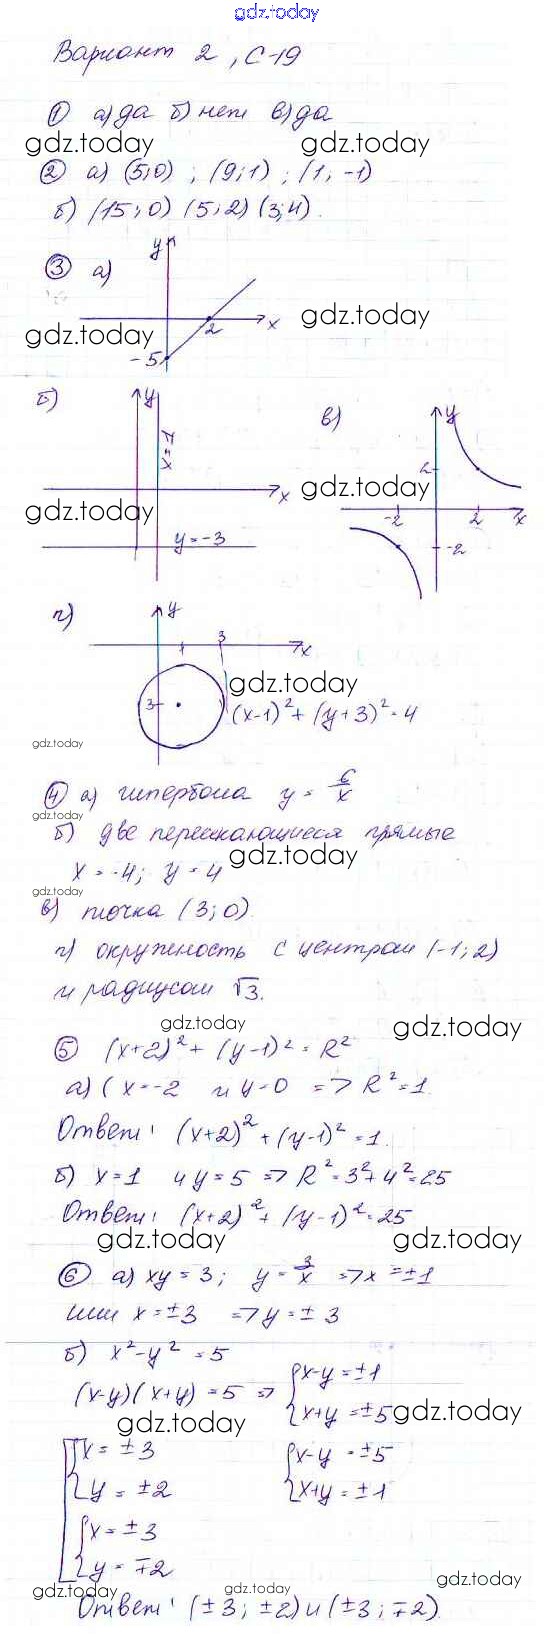 gdz.today
Вариант 2, С-19
① а) да б) нет в) да
gdz.today gdz.today
② а) (5;0) ; (9;1) ; (1, -1)
б) (15;0) (5;2) (3;4).
③ а) y
x
2
-5
gdz.today gdz.today
б) y x=1 x y=-3
в) y 2 -2 2 x -2
gdz.today gdz.today
г) y 1 3 x 3
gdz.today
(x-1)² + (y+3)² = 4
gdz.today
④ а) гипербола y = 6/x
gdz.today
б) две пересекающиеся прямые
gdz.today
x = -4; y = 4
gdz.today
в) точка (3;0)
г) окружность с центром (-1;2)
и радиусом √3.
gdz.today gdz.today
⑤ (x+2)² + (y-1)² = R²
а) (x=-2 и y=0 => R²=1.
Ответ: (x+2)² + (y-1)² = 1.
б) x=1 и y=5 => R²=3²+4²=25
Ответ: (x+2)² + (y-1)² = 25
gdz.today gdz.today
⑥ а) xy=3; y=3/x => x=±1
или x=±3 => y=±3
б) x²-y²=5
(x-y)(x+y)=5 => { x-y=±1
x+y=±5
gdz.today gdz.today
[ { x=±3 { x-y=±5
y=±2 x+y=±1
{ x=±3
y=∓2
gdz.today gdz.today gdz.today
Ответ: (±3; ±2) и (±3; ∓2)